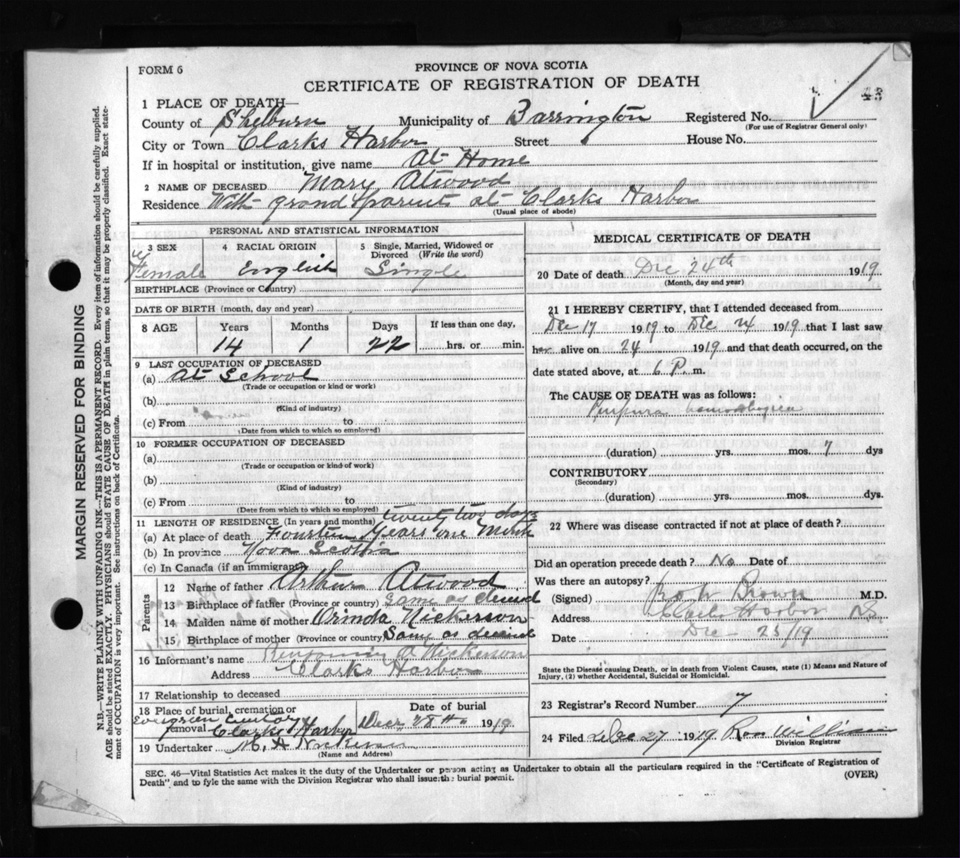 FORM 6
PROVINCE OF NOVA SCOTIA
CERTIFICATE OF REGISTRATION OF DEATH
43
1 PLACE OF DEATH—
County of Shelburn Municipality of Barrington Registered No.
(For use of Registrar General only)
City or Town Clarks Harbor Street House No.
If in hospital or institution, give name At Home
2 NAME OF DECEASED Mary Atwood
Residence With grand parent at Clarks Harbor
(Usual place of abode)
PERSONAL AND STATISTICAL INFORMATION
3 SEX 4 RACIAL ORIGIN 5 Single, Married, Widowed or Divorced (Write the word)
Female English Single
BIRTHPLACE (Province or Country)
DATE OF BIRTH (month, day and year)
8 AGE Years Months Days If less than one day,
14 1 22 hrs. or min.
9 LAST OCCUPATION OF DECEASED
(a) At School
(Trade or occupation or kind or work)
(b)
(Kind of industry)
(c) From to
(Date from which to which so employed)
10 FORMER OCCUPATION OF DECEASED
(a)
(Trade or occupation or kind of work)
(b)
(Kind of industry)
(c) From to
(Date from which to which so employed)
11 LENGTH OF RESIDENCE (In years and months) twenty two days
(a) At place of death Fourteen years one Month
(b) In province Nova Scotia
(c) In Canada (if an immigrant)
Parents
12 Name of father Arthur Atwood
13 Birthplace of father (Province or country) Same as deceised
14 Maiden name of mother Orinda Nickerson
15 Birthplace of mother (Province or country) Same as deceised
16 Informant's name Benjamin A Nickerson
Address Clarks Harbor
17 Relationship to deceased
18 Place of burial, cremation or removal Clarks Harbor
Date of burial Dec 28th 1919
19 Undertaker M. A Nickerson
(Name and Address)
MEDICAL CERTIFICATE OF DEATH
20 Date of death Dec 24th 1919
(Month, day and year)
21 I HEREBY CERTIFY, that I attended deceased from
Dec 17 1919 to Dec 24 1919 that I last saw
her alive on 24 1919 and that death occurred, on the
date stated above, at 6 P. m.
The CAUSE OF DEATH was as follows:
Purpura
(duration) yrs. mos. 7 dys
CONTRIBUTORY
(Secondary)
(duration) yrs. mos. dys.
22 Where was disease contracted if not at place of death?
Did an operation precede death? No Date of
Was there an autopsy?
(Signed) Brown M.D.
Address Harbor NS
Date Dec - 25/19
State the Disease causing Death, or in death from Violent Causes, state (1) Means and Nature of
Injury, (2) whether Accidental, Suicidal or Homicidal.
23 Registrar's Record Number 7
24 Filed Dec 27 1919
Division Registrar
SEC. 46—Vital Statistics Act makes it the duty of the Undertaker or person acting as Undertaker to obtain all the particulars required in the "Certificate of Registration of
Death" and to fyle the same with the Division Registrar who shall issue the burial permit. (OVER)
MARGIN RESERVED FOR BINDING
N.B.—WRITE PLAINLY WITH UNFADING INK—THIS IS A PERMANENT RECORD. Every item of information should be carefully supplied.
AGE should be stated EXACTLY. PHYSICIANS should STATE CAUSE OF DEATH in plain terms, so that it may be properly classified. Exact state-
ment of OCCUPATION is very important. See instructions on back of Certificate.